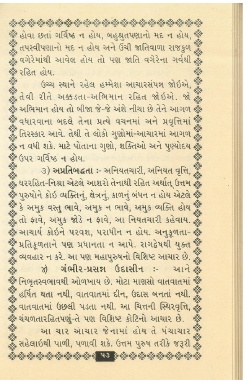 હોવા છતાં ગર્વિષ્ઠ ન હોય, બહુશ્રુતપણાનો મદ ન હોય,
તપસ્વીપણાનો મદ ન હોય અને ઉંચી જાતિવાળા રાજકુળ
વગેરેમાંથી આવેલ હોય તો પણ જાતિ વગેરેના ગર્વથી
રહિત હોય.
ઉચ્ચ સ્થાને રહેલ હંમેશા આચારસંપન્ન જોઈએ,
તેવી રીતે અક્કડતા-અભિમાન રહિત જોઈએ. જો
અભિમાન હોય તો બીજા જે-જે અંશે નીચા છે તેને આગળ
વધારવાના બદલે તેના પ્રત્યે વચનમાં અને પ્રવૃત્તિમાં
તિરસ્કાર આવે. તેથી તે લોકો ગુણોમાં-આચારમાં આગળ
ન વધી શકે. માટે પોતાના ગુણો, શક્તિઓ અને પુણ્યોદય
ઉપર ગર્વિષ્ઠ ન હોય.
૩) અપ્રતિબદ્ધતા :- અનિયતચારી, અનિયત વૃત્તિ,
ઘરરહિત-નિશ્રા એટલે આશરો તેનાથી રહિત અર્થાત્ ઉત્તમ
પુરુષોને કોઈ વ્યક્તિનું, ક્ષેત્રનું, કાળનું બંધન ન હોય એટલે
કે અમુક વસ્તુ ભાવે, અમુક ન ભાવે, અમુક વ્યક્તિ હોય
તો ફાવે, અમુક જોડે ન ફાવે. આ નિયતચારી કહેવાય.
આચાર્ય કોઈને પરવશ, પરાધીન ન હોય. અનુકૂળતા-
પ્રતિકૂળતાને પણ પ્રધાનતા ન આપે. રાગદ્વેષથી યુક્ત
વ્યવહાર ન કરે. આ પણ મહાપુરુષનો વિશિષ્ટ આચાર છે.
૪) ગંભીર-પ્રસન્ન ઉદાસીન :- આને
નિભૃતસ્વભાવથી ઓળખાય છે. મોટા માણસો વાતવાતમાં
હર્ષિત થતા નથી, વાતવાતમાં દીન, ઉદાસ બનતાં નથી.
વાતવાતમાં ઉછળી પડતા નથી. આ ચિત્તની સ્થિરવૃત્તિ,
ચંચળતારહિતપણું-તે પણ વિશિષ્ટ કોટિનો આચાર છે.
આ ચાર આચાર જેનામાં હોય તે પંચાચાર
સહેલાઈથી પાળી, પળાવી શકે. ઉત્તમ પુરુષ તરીકે જરૂરી
૫૩